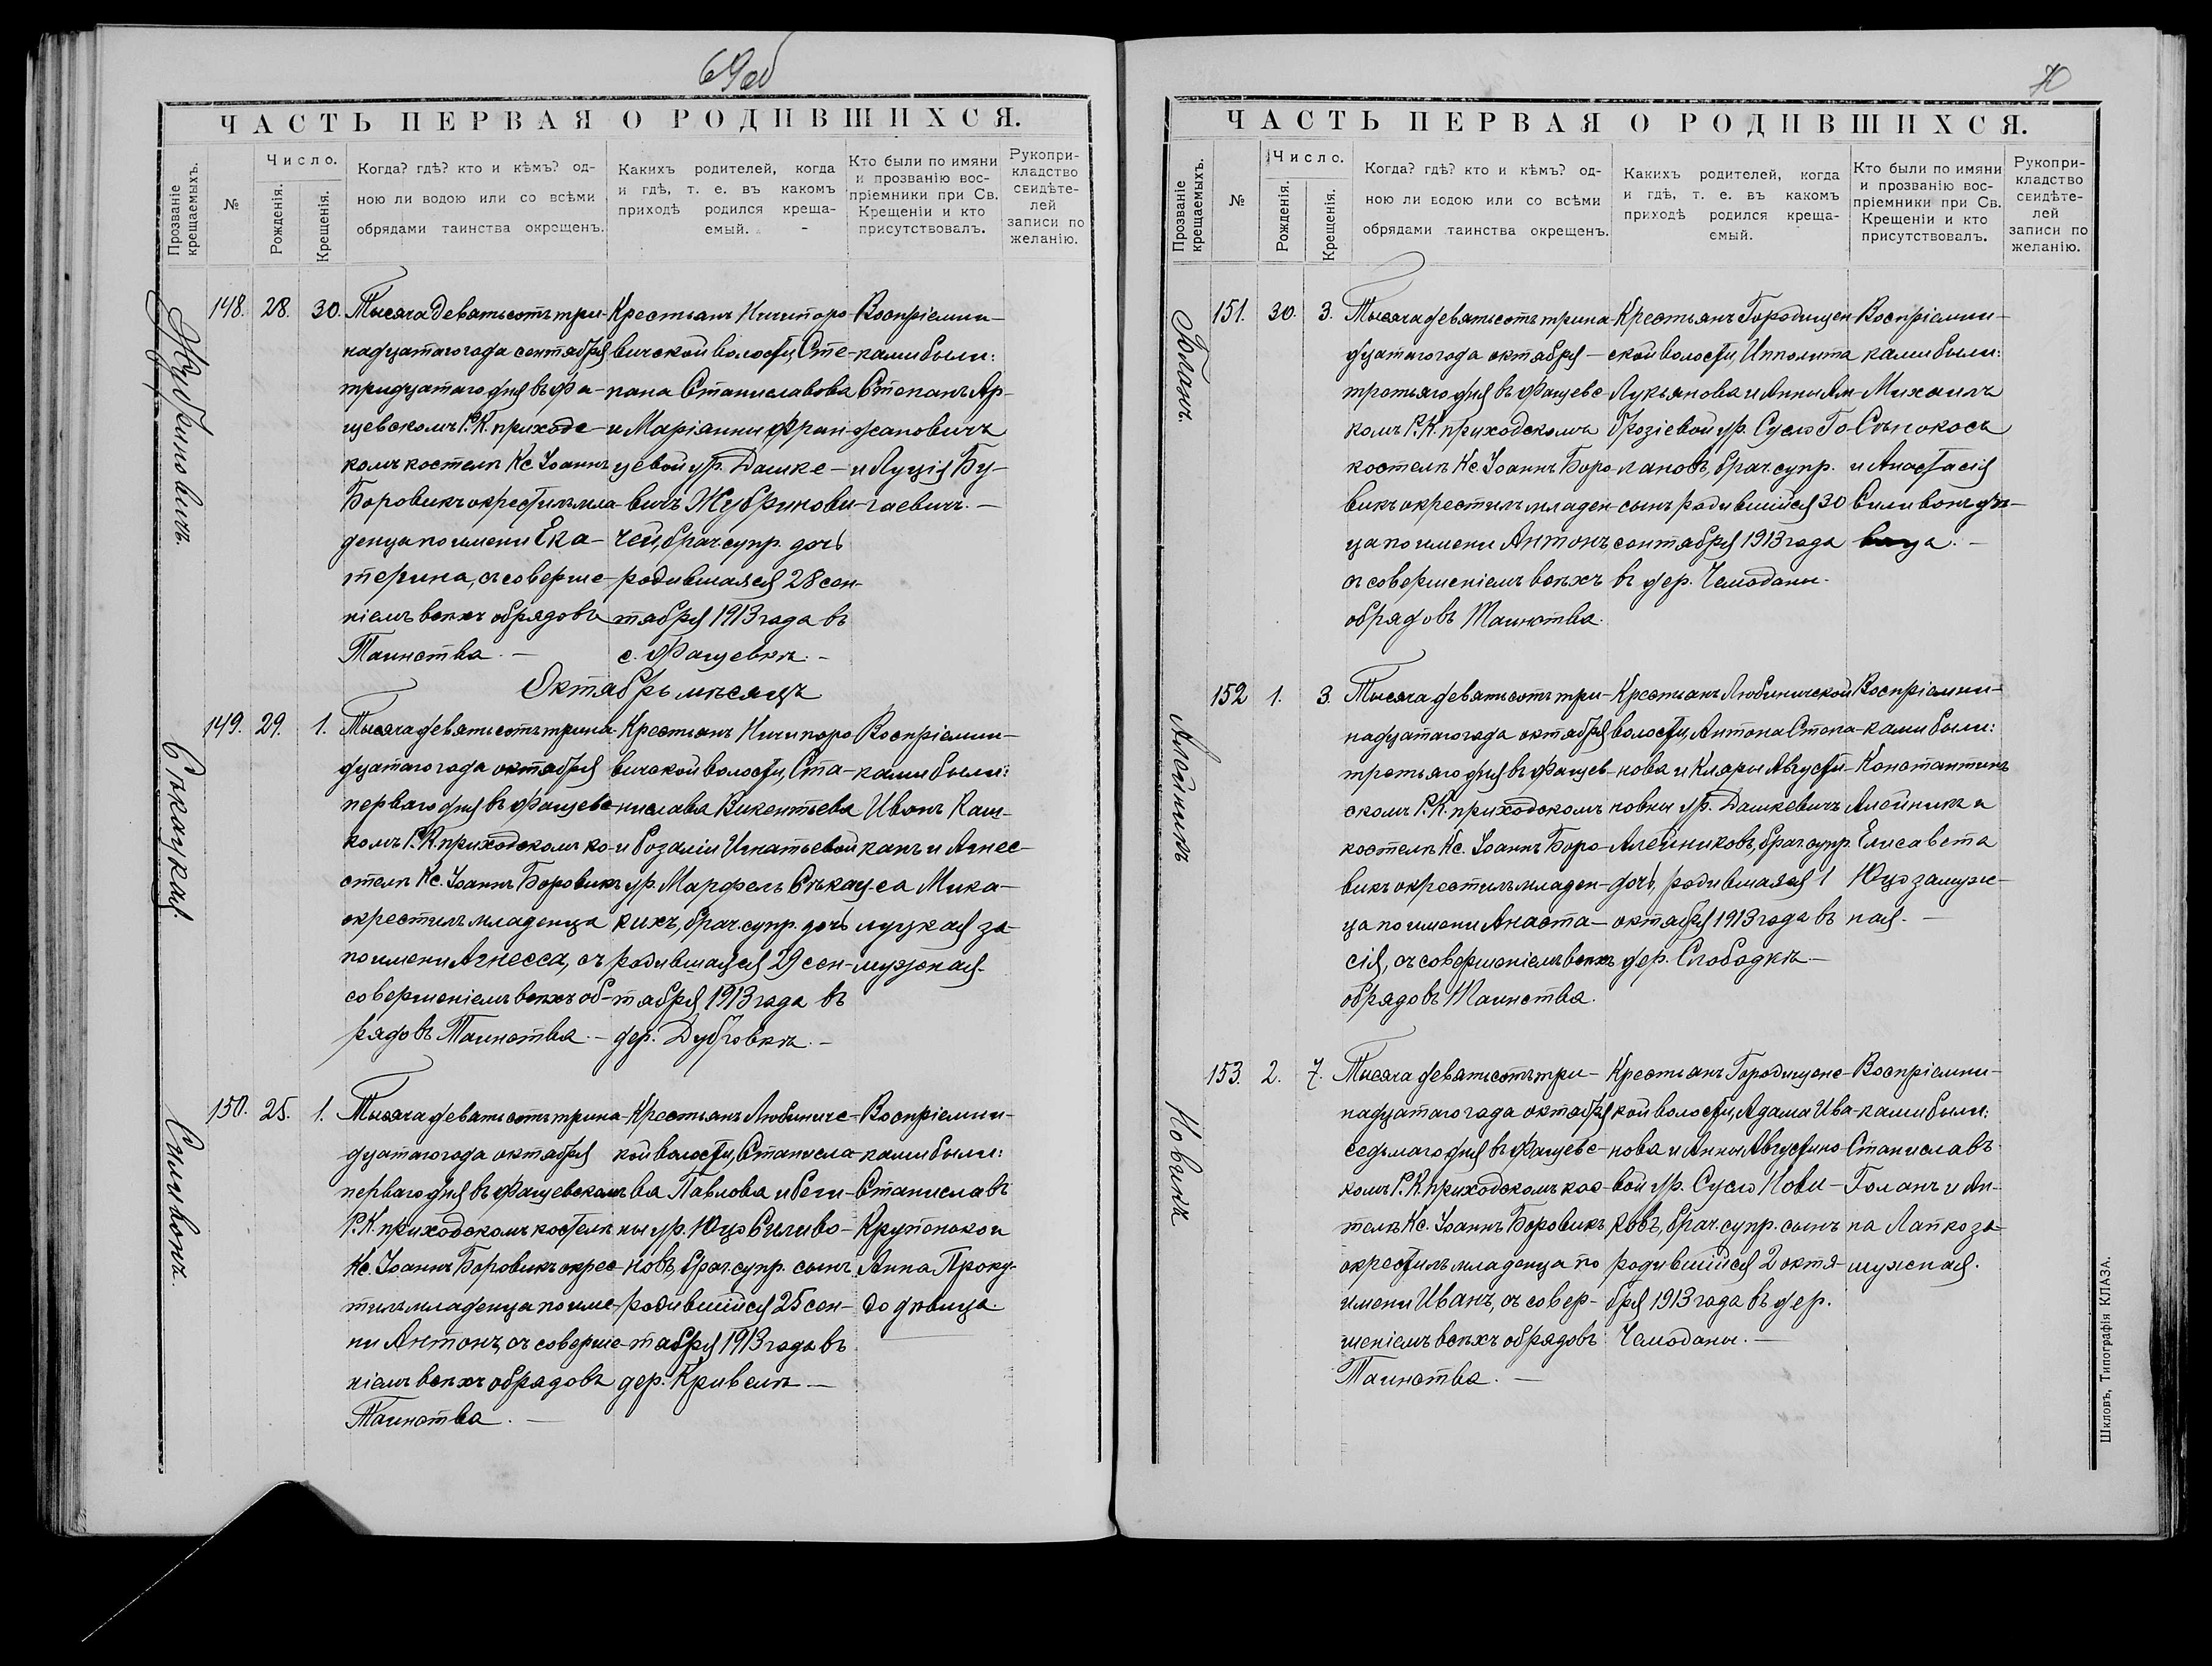 69об
ЧАСТЬ ПЕРВАЯ О РОДИВШИХСЯ.
Прозваніе крещаемыхъ.
№
Число.
Рожденія.
Крещенія.
Когда? гдѣ? кто и кѣмъ? од-
ною ли водою или со всѣми
обрядами таинства окрещенъ.
Какихъ родителей, когда
и гдѣ, т. е. въ какомъ
приходѣ родился креща-
емый.
Кто были по имяни
и прозванію вос-
пріемники при Св.
Крещеніи и кто
присутствовалъ.
Рукопри-
кладство
свидѣте-
лей
записи по
желанію.
148. 28. 30.
Тысяча девятьсотъ три-
надцатаго года сентября
тридцатаго дня въ Фа-
щевскомъ Р.К. приходс-
комъ костелѣ Кс. Іоаннъ
Боровикъ окрестилъ мла-
денца по имени Ека-
терина, съ соверше-
ніемъ всѣхъ обрядовъ
Таинства. —
Крестьянъ Ничипоро-
вичской волости, Сте-
пана Станиславова
и Маріанны Фран-
цевой ур. Дашке-
вичъ Жубринови-
чей, брач. супр. дочь
родившаяся 28 сен-
тября 1913 года въ
с. Фащевкѣ. —
Воспріемни-
ками были:
Степанъ Ар-
и Луція Бу-
гаевичъ. —
Октябрь мѣсяцъ
149. 29. 1.
Тысяча девятьсотъ трина-
дцатаго года октября
перваго дня въ Фащевс-
комъ Р.К. приходскомъ ко-
стелѣ Кс. Іоаннъ Боровикъ
окрестилъ младенца
по имени Агнесса, съ
совершеніемъ всѣхъ об-
рядовъ Таинства. —
Крестьянъ Ничипоро-
вичской волости, Ста-
нислава Викентьева
и Розаліи Игнатьевой
ур. Марфель Сѣкац-
кихъ, брач. супр. дочь
родившаяся 29 сен-
тября 1913 года въ
дер. Дубровкѣ. —
Воспріемни-
ками были:
Иванъ Каш-
канъ и Агнес-
са Мика-
луцкая за-
мужняя.
150. 25. 1.
Тысяча девятьсотъ трина-
дцатаго года октября
перваго дня въ Фащевскомъ
Р.К. приходскомъ костелѣ
Кс. Іоаннъ Боровикъ окрес-
тилъ младенца по име-
ни Антонъ, съ соверше-
ніемъ всѣхъ обрядовъ
Таинства. —
Крестьянъ Любиничс-
кой волости, Станисла-
ва Павлова и Реги-
ны ур. Юцо Силиво-
новъ, брач. супр. сынъ
родившійся 25 сен-
тября 1913 года въ
дер. Кривелѣ —
Воспріемни-
ками были:
Станиславъ
и
Анна Проку-
до дѣвица.
Сѣкацкая.
Силивонъ.
70
ЧАСТЬ ПЕРВАЯ О РОДИВШИХСЯ.
Прозваніе крещаемыхъ.
№
Число.
Рожденія.
Крещенія.
Когда? гдѣ? кто и кѣмъ? од-
ною ли водою или со всѣми
обрядами таинства окрещенъ.
Какихъ родителей, когда
и гдѣ, т. е. въ какомъ
приходѣ родился креща-
емый.
Кто были по имяни
и прозванію вос-
пріемники при Св.
Крещеніи и кто
присутствовалъ.
Рукопри-
кладство
свидѣте-
лей
записи по
желанію.
Голанъ.
151. 30. 3.
Тысяча девятьсотъ трина-
дцатаго года октября —
третьяго дня въ Фащевс-
комъ Р.К. приходскомъ
костелѣ Кс. Іоаннъ Боро-
викъ окрестилъ младен-
ца по имени Антонъ
съ совершеніемъ всѣхъ
обрядовъ Таинства.
Крестьянъ Городищен-
ской волости, Ипполита
Лукьянова и Анны Ам-
брозіевой ур. Сусло Го-
лановъ, брач. супр.
сынъ родившійся 30
сентября 1913 года
въ дер. Чемоданы.
Воспріемни-
ками были:
Михаилъ
Сѣнокосъ
и Анастасія
Силивонъ дѣ-
вица. —
Алейникъ
152 1. 3.
Тысяча девятьсотъ три-
надцатаго года октября
третьяго дня въ Фащев-
скомъ Р.К. приходскомъ
костелѣ Кс. Іоаннъ Боро-
викъ окрестилъ младен-
ца по имени Анаста-
сія, съ совершеніемъ всѣхъ
обрядовъ Таинства.
Крестьянъ Любиничской
волости, Антона Степа-
нова и Клары Августи-
новны ур. Дашкевичъ
Алейниковъ, брач. супр.
дочь, родившаяся 1
октября 1913 года въ
дер. Слободкѣ —
Воспріемни-
ками были:
Константинъ
Алейникъ и
Елисавета
Юцо замуж-
ная. —
Новикъ
153. 2. 7.
Тысяча девятьсотъ три-
надцатаго года октября
седьмаго дня въ Фащевс-
комъ Р.К. приходскомъ кос-
телѣ Кс. Іоаннъ Боровикъ
окрестилъ младенца по
имени Иванъ, съ совер-
шеніемъ всѣхъ обрядовъ
Таинства. —
Крестьянъ Городищенс-
кой волости, Адама Ива-
нова и Анны Августино-
вой ур. Сусло Нови-
ковъ, брач. супр. сынъ
родившійся 2 октя-
бря 1913 года въ дер.
Чемоданы. —
Воспріемни-
ками были:
Станиславъ
Голанъ и Ан-
на Лапко за-
мужная.
Шкловъ, Типографія КЛАЗА.